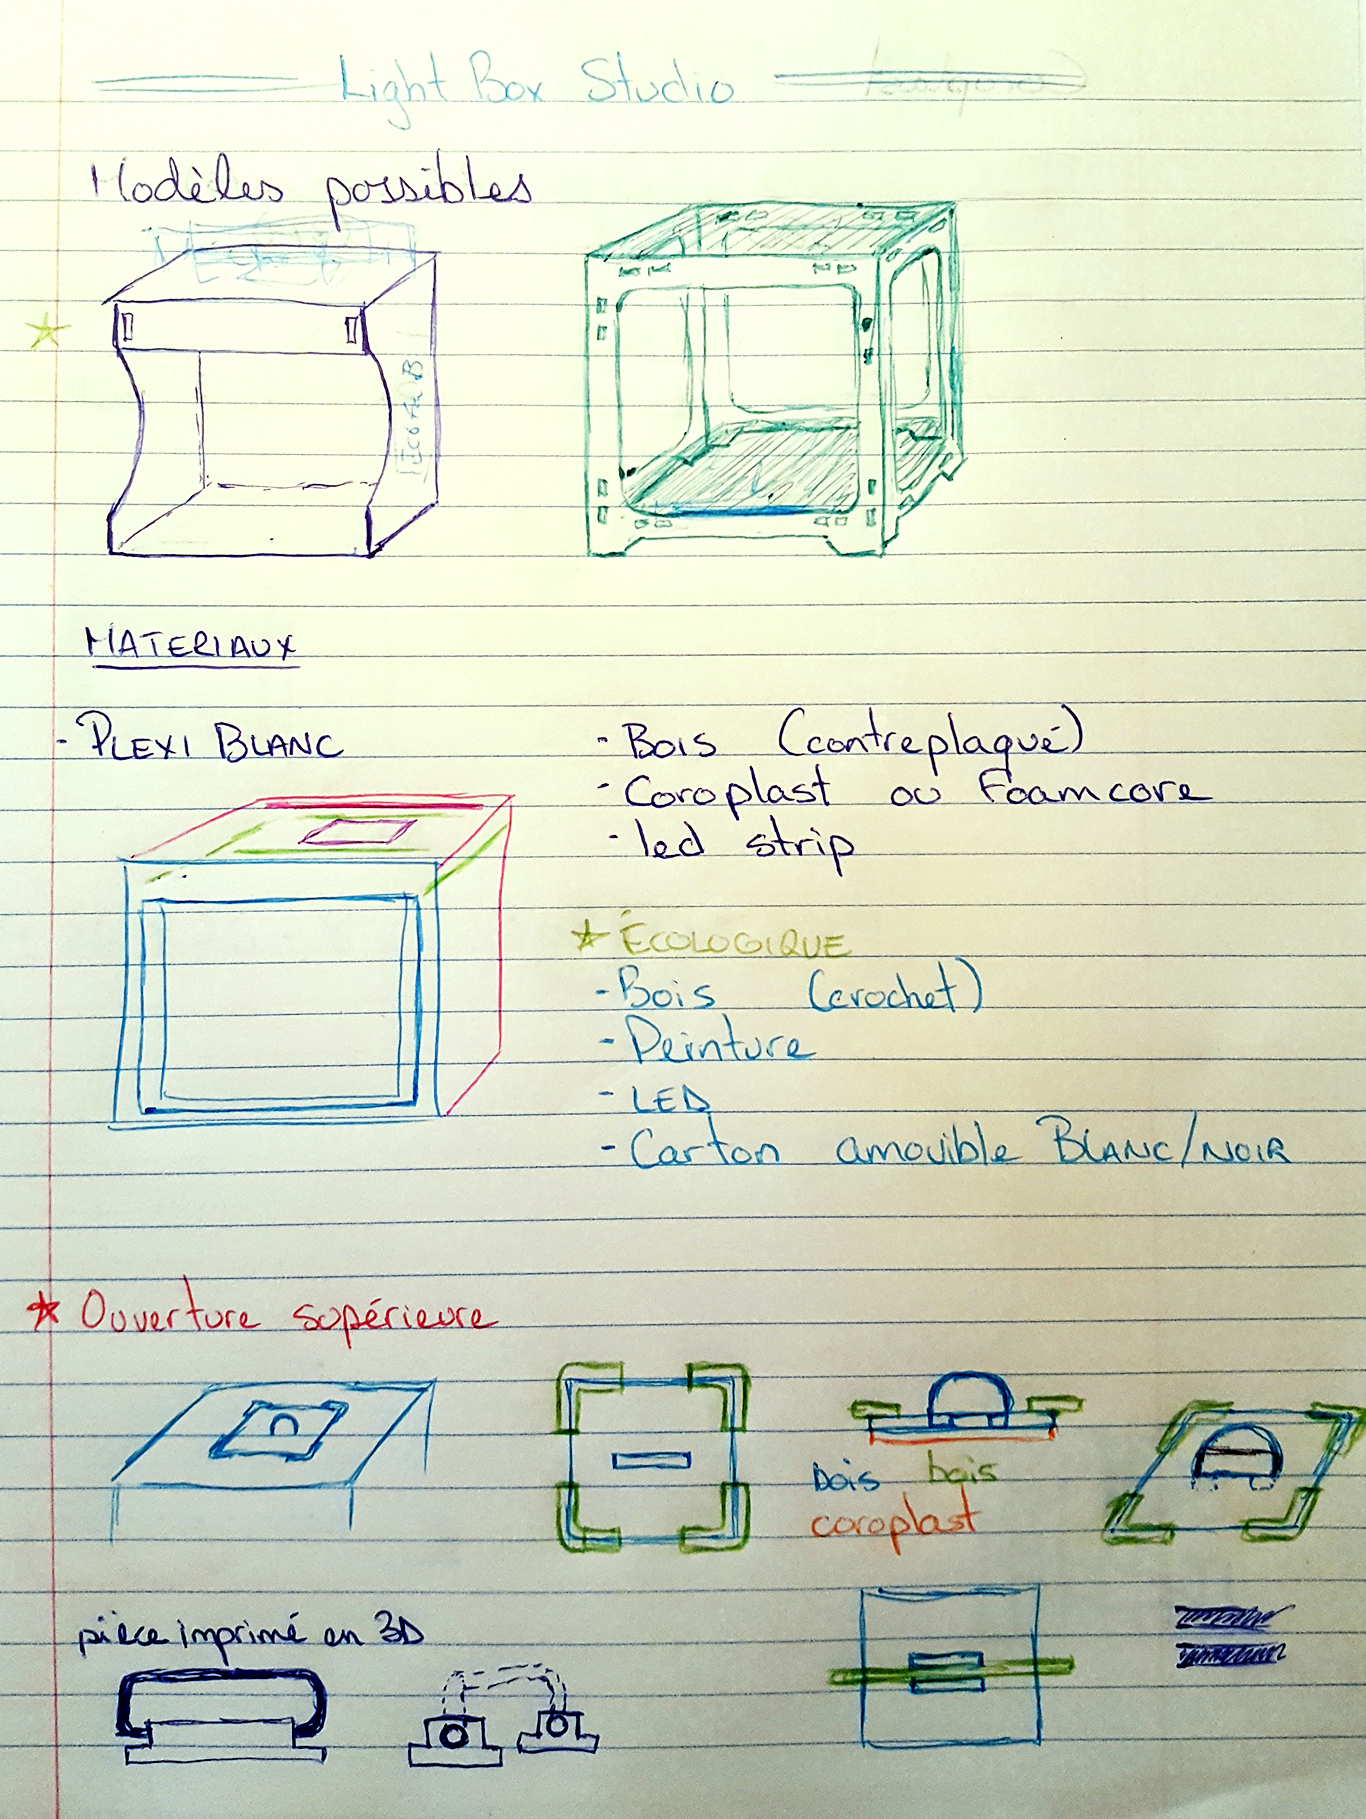 Light Box Studio
Modèles possibles
MATERIAUX
- PLEXI BLANC
- Bois (contreplaqué)
- Coroplast ou Foamcore
- led strip
★ ÉCOLOGIQUE
- Bois (crochet)
- Peinture
- LED
- Carton amovible BLANC/NOIR
★ Ouverture supérieure
bois bois
coroplast
pièce imprimé en 3D